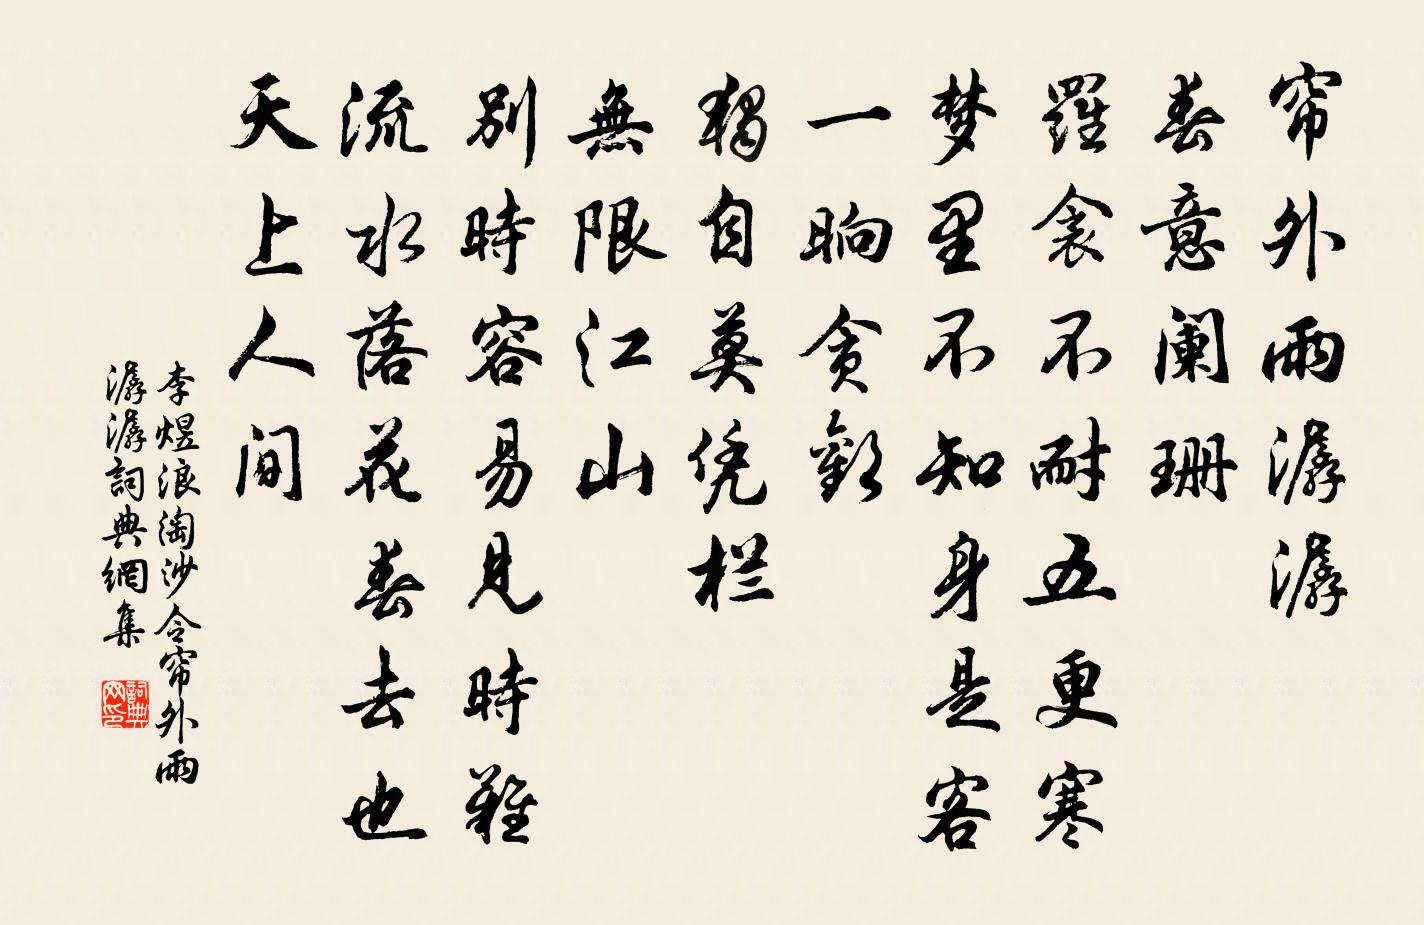 帘外雨潺潺
春意阑珊
羅衾不耐五更寒
梦里不知身是客
一晌贪歡
獨自莫凭栏
無限江山
别時容易見時難
流水落花春去也
天上人间
李煜浪淘沙令帘外雨
潺潺詞典網集
詞典
网印